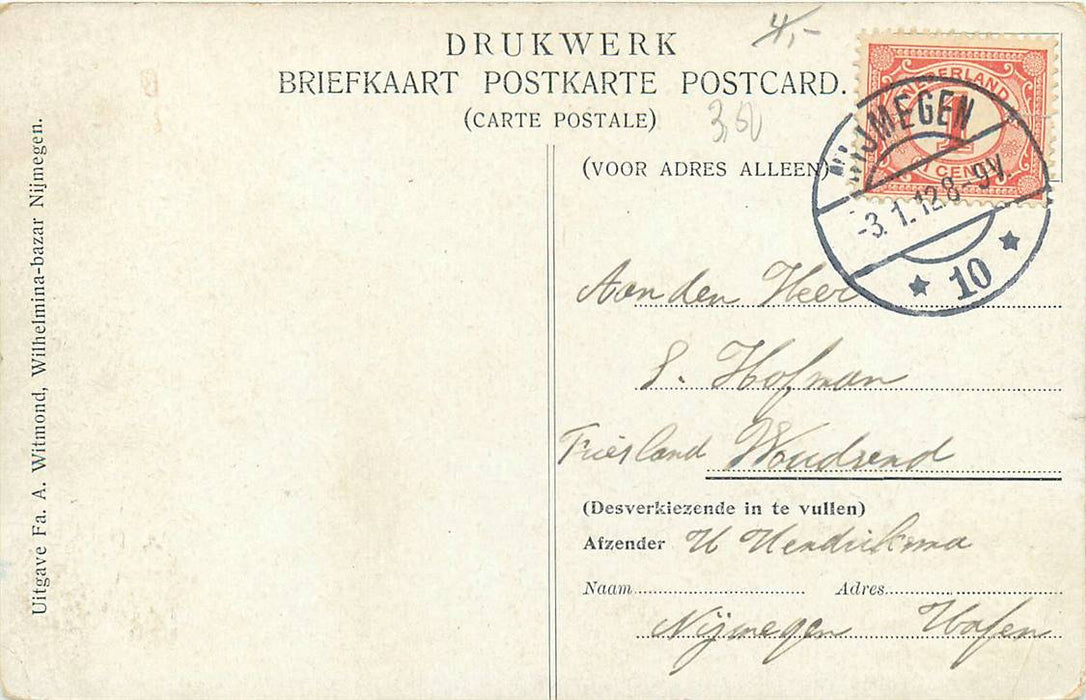 DRUKWERK
BRIEFKAART POSTKARTE POSTCARD.
(CARTE POSTALE)
4,-
3,50
(VOOR ADRES ALLEEN)
NEDERLAND
1
1 CENT
NIJMEGEN
-3.1.12.8-9V.
10
Aan den Heer
S. Hofman
Friesland Woudsend
(Desverkiezende in te vullen)
Afzender H Hendriksma
Naam Adres
Nijmegen Hafen
Uitgave Fa. A. Witmond, Wilhelmina-bazar Nijmegen.